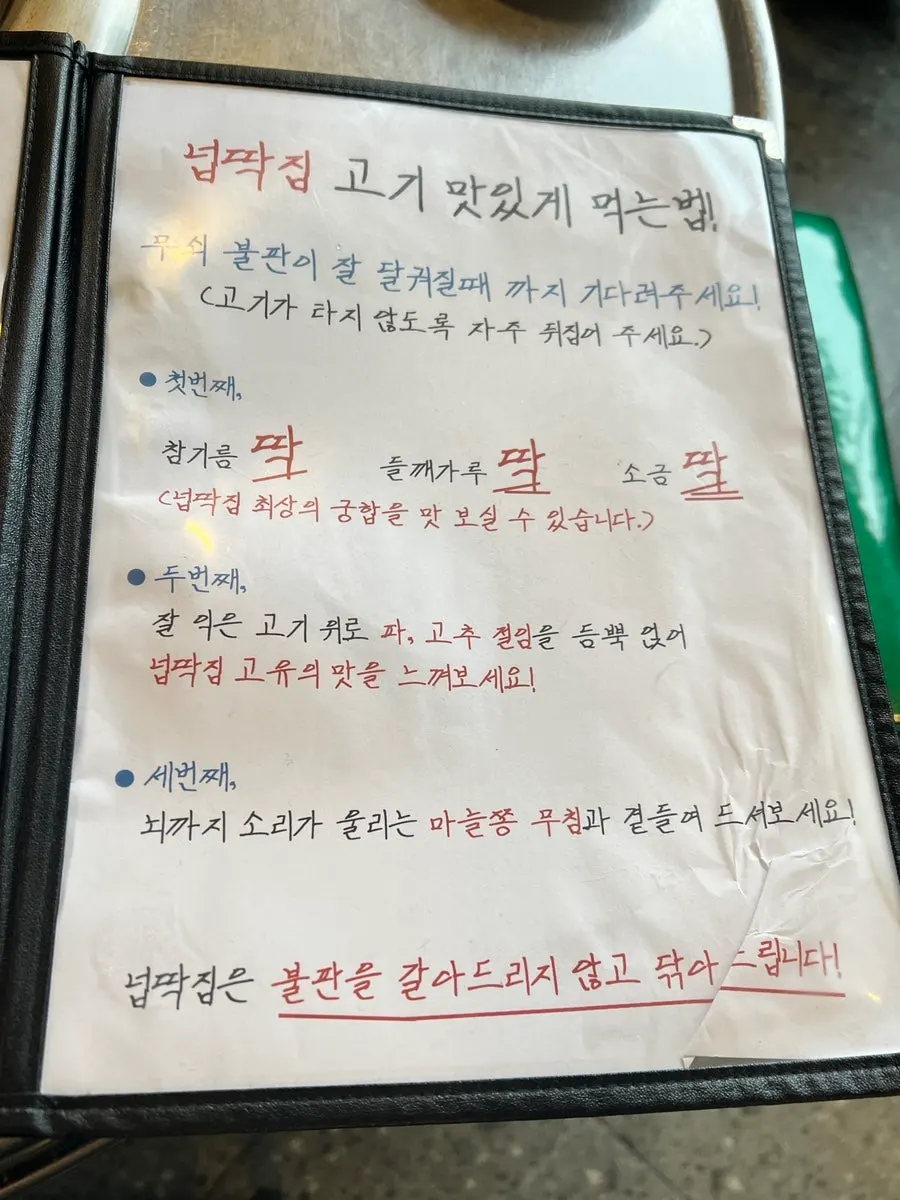 넙딱집 고기 맛있게 먹는법!
무쇠 불판이 잘 달궈질때 까지 기다려주세요!
(고기가 타지 않도록 자주 뒤집어 주세요.)
● 첫번째,
참기름 딱 들깨가루 딱 소금 딱
(넙딱집 최상의 궁합을 맛 보실 수 있습니다.)
● 두번째,
잘 익은 고기 위로 파, 고추 절임을 듬뿍 얹어
넙딱집 고유의 맛을 느껴보세요!
● 세번째,
뇌까지 소리가 울리는 마늘쫑 무침과 곁들여 드셔보세요!
넙딱집은 불판을 갈아드리지 않고 닦아 드립니다!